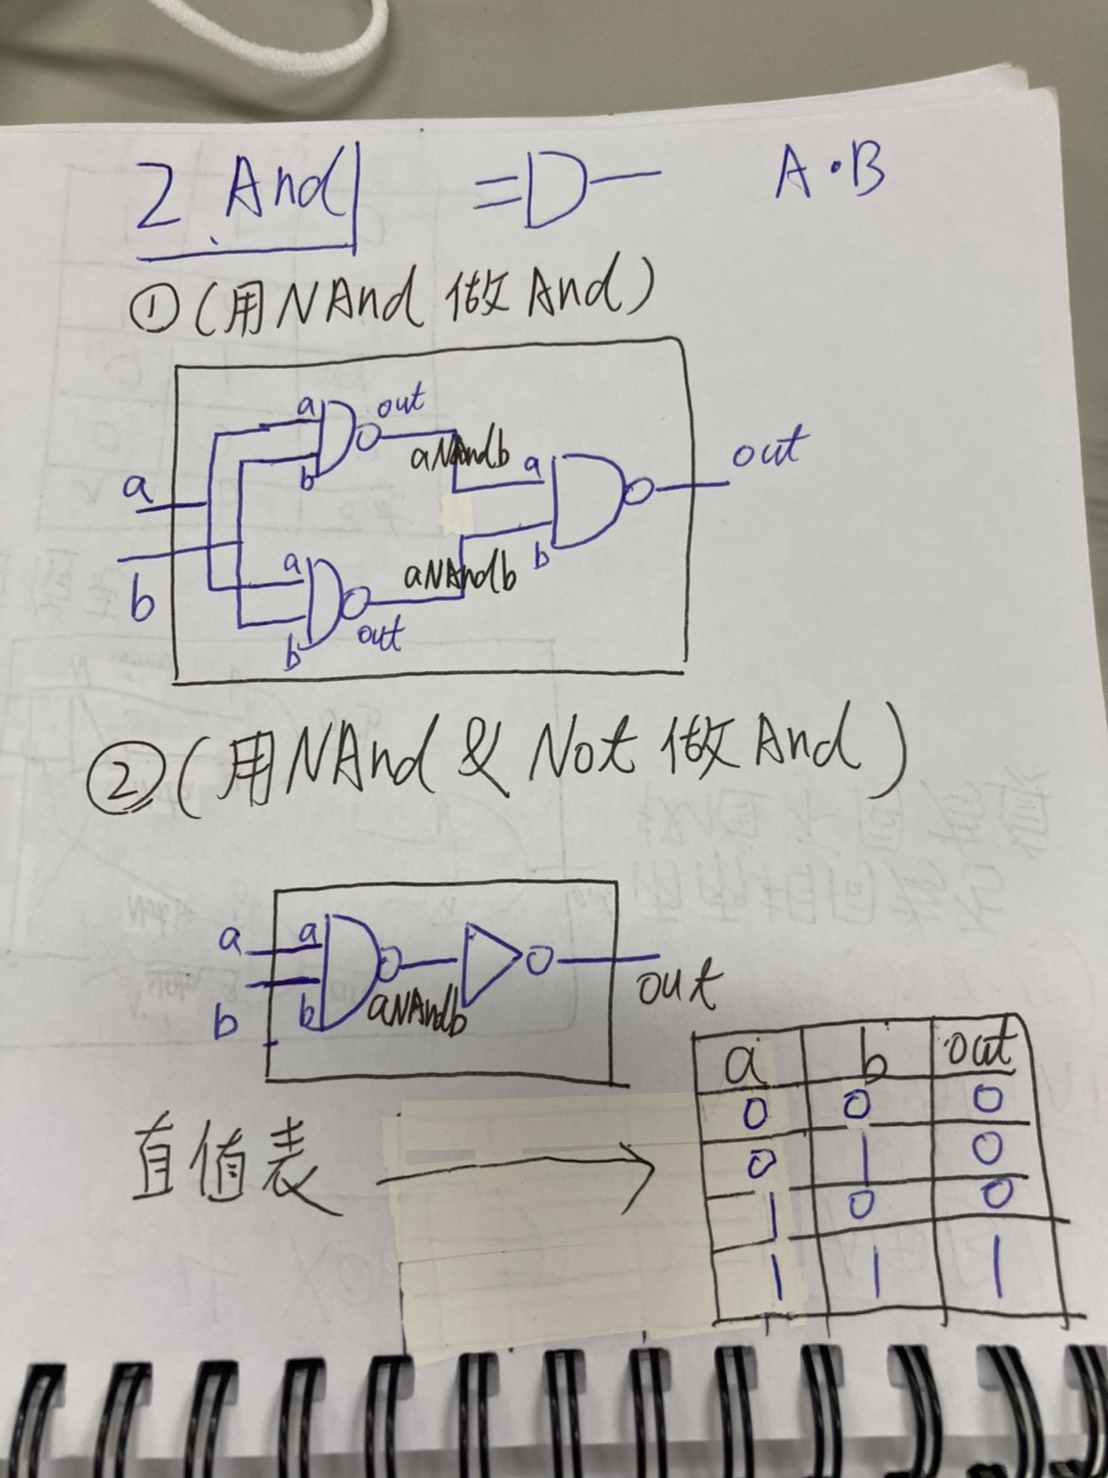 2 And A·B
①(用NAnd 做And)
a out
aNAndb a out
b
a
a
aNAndb b
b out
b
②(用NAnd & Not 做And)
a a
b b aNAndb out
直值表
a b out
0 0 0
0 1 0
1 0 0
1 1 1